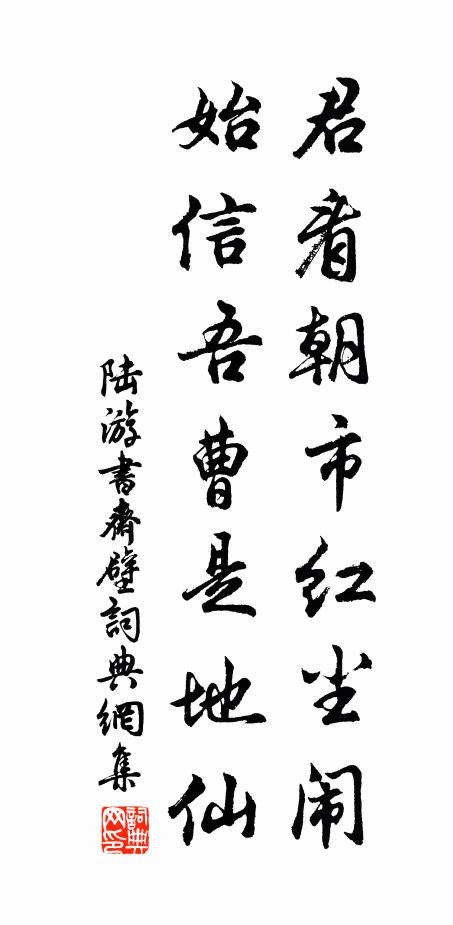 君看朝市红尘闹
始信吾曹是地仙
陆游書斋壁詞典網集
詞典网印